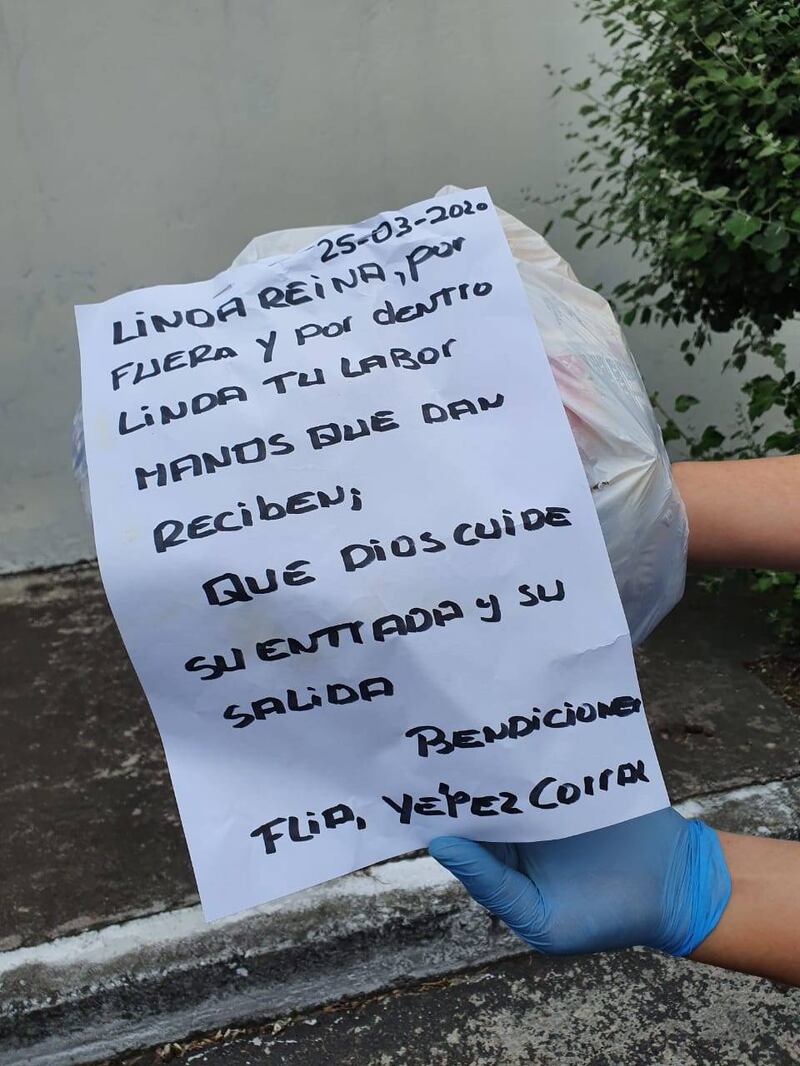 25-03-2020
LINDA REINA, por
FUERA y por dentro
LINDA TU LABOR
MANOS QUE DAN
RECIBEN;
QUE DIOS CUIDE
SU ENTRADA y SU
SALIDA
BENDICIONES
FLIA, YÉPEZ CORRAL